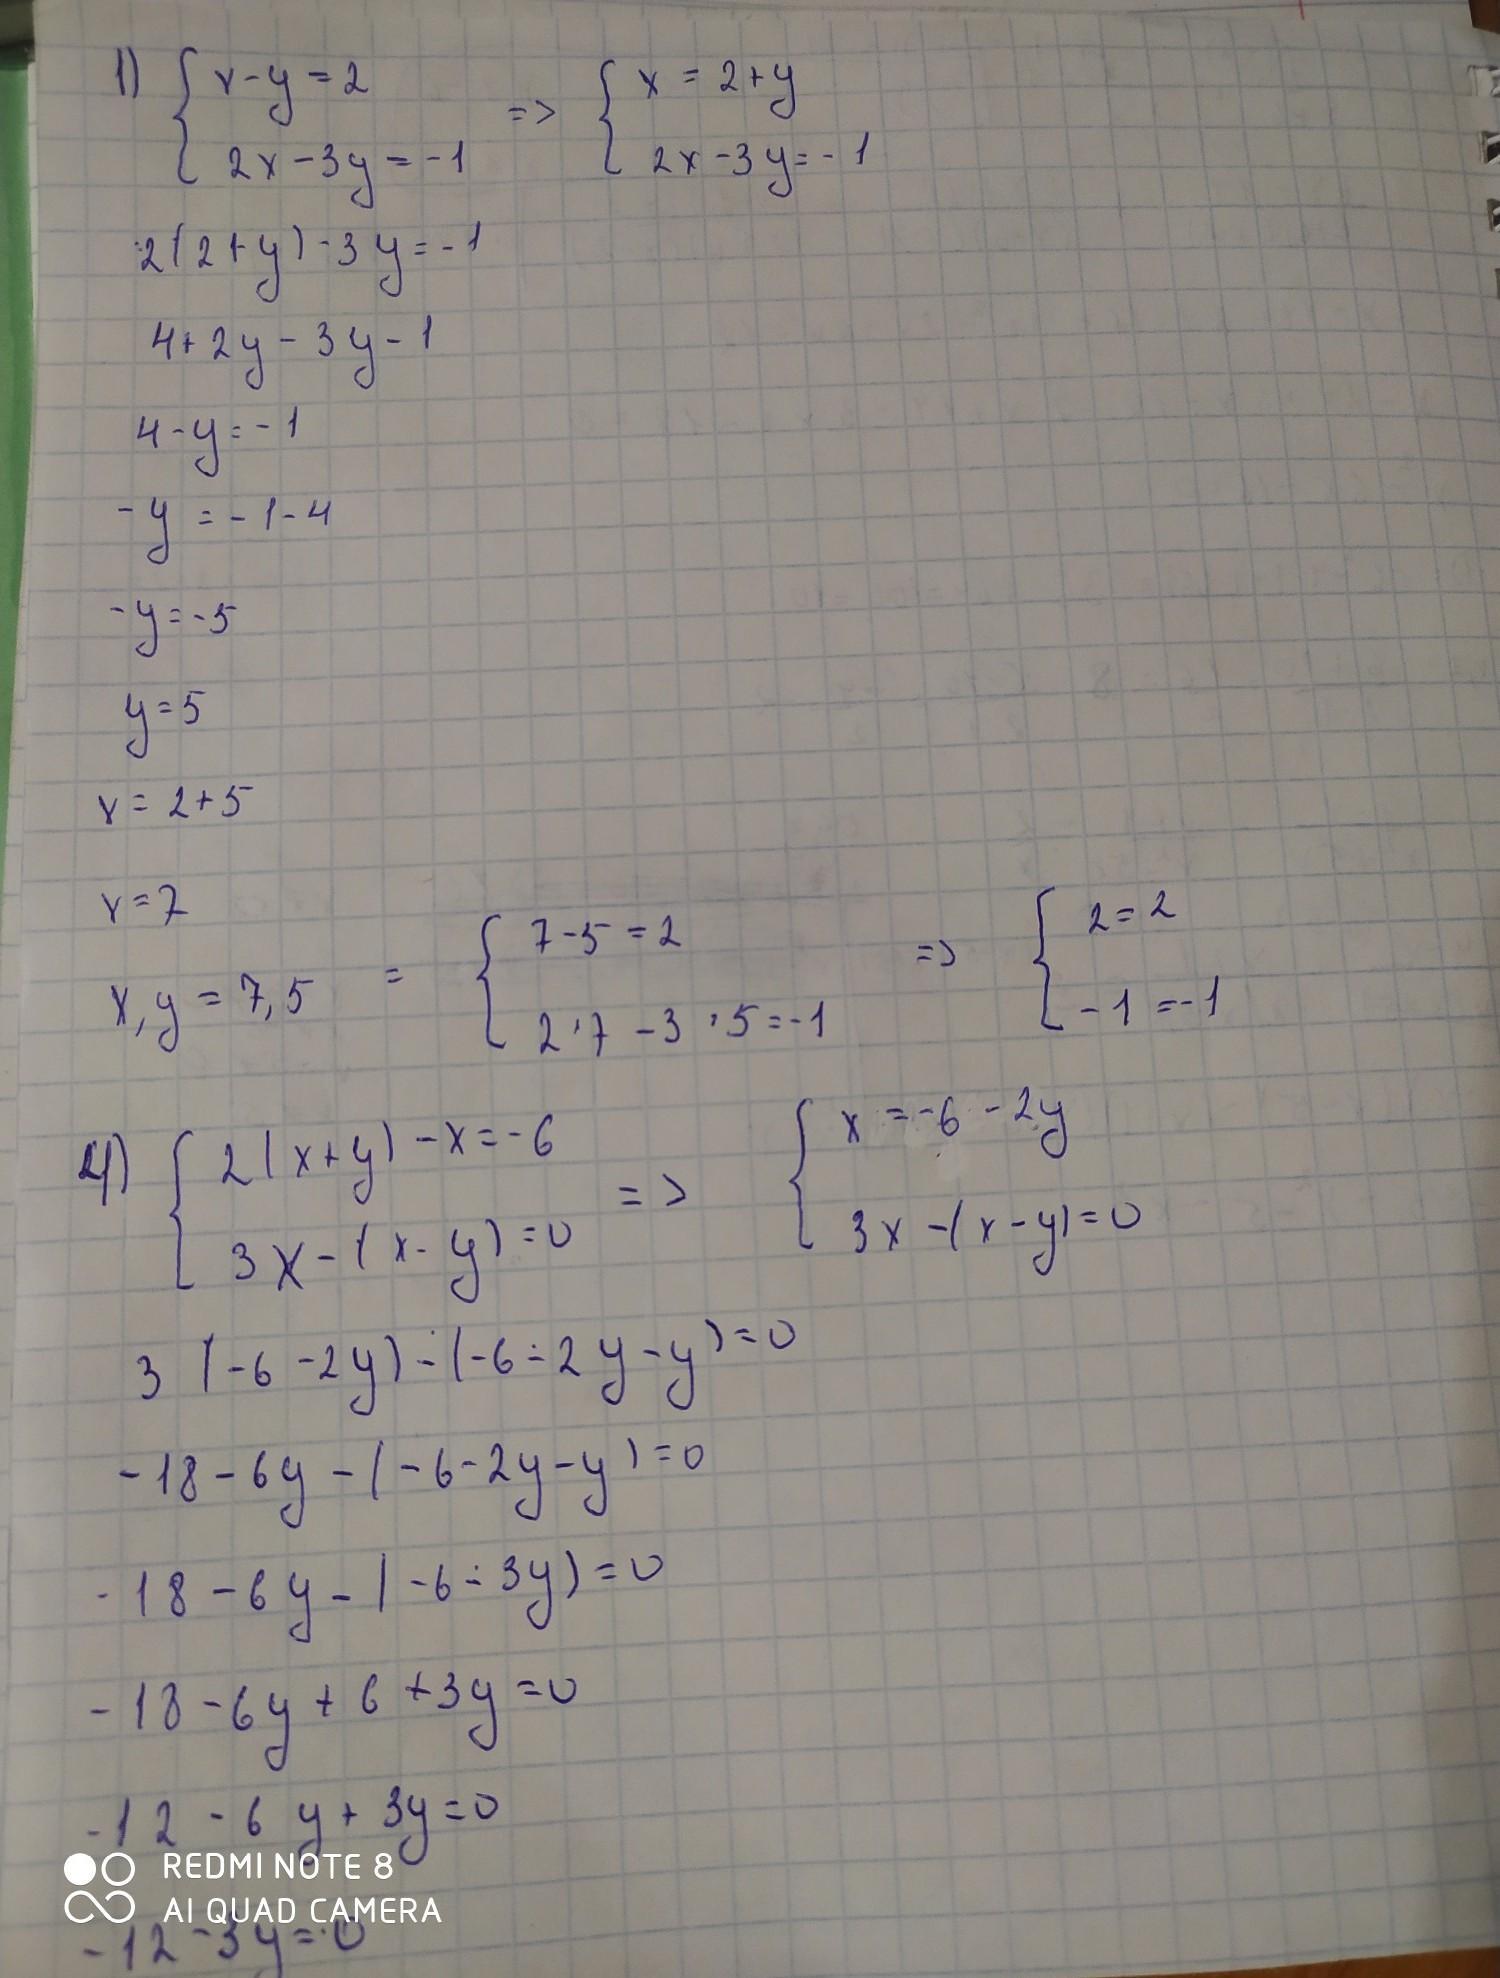 1) { x-y=2 => { x = 2+y
2x-3y=-1 2x-3y=-1
2(2+y)-3y=-1
4+2y-3y-1
4-y=-1
-y=-1-4
-y=-5
y=5
x=2+5
x=7
x,y=7,5 = { 7-5=2 => { 2=2
2·7-3·5=-1 -1=-1
4) { 2(x+y)-x=-6 => { x=-6-2y
3x-(x-y)=0 3x-(x-y)=0
3(-6-2y)-(-6-2y-y)=0
-18-6y-(-6-2y-y)=0
-18-6y-(-6-3y)=0
-18-6y+6+3y=0
-12-6y+3y=0
REDMI NOTE 8
AI QUAD CAMERA
-12-3y=0